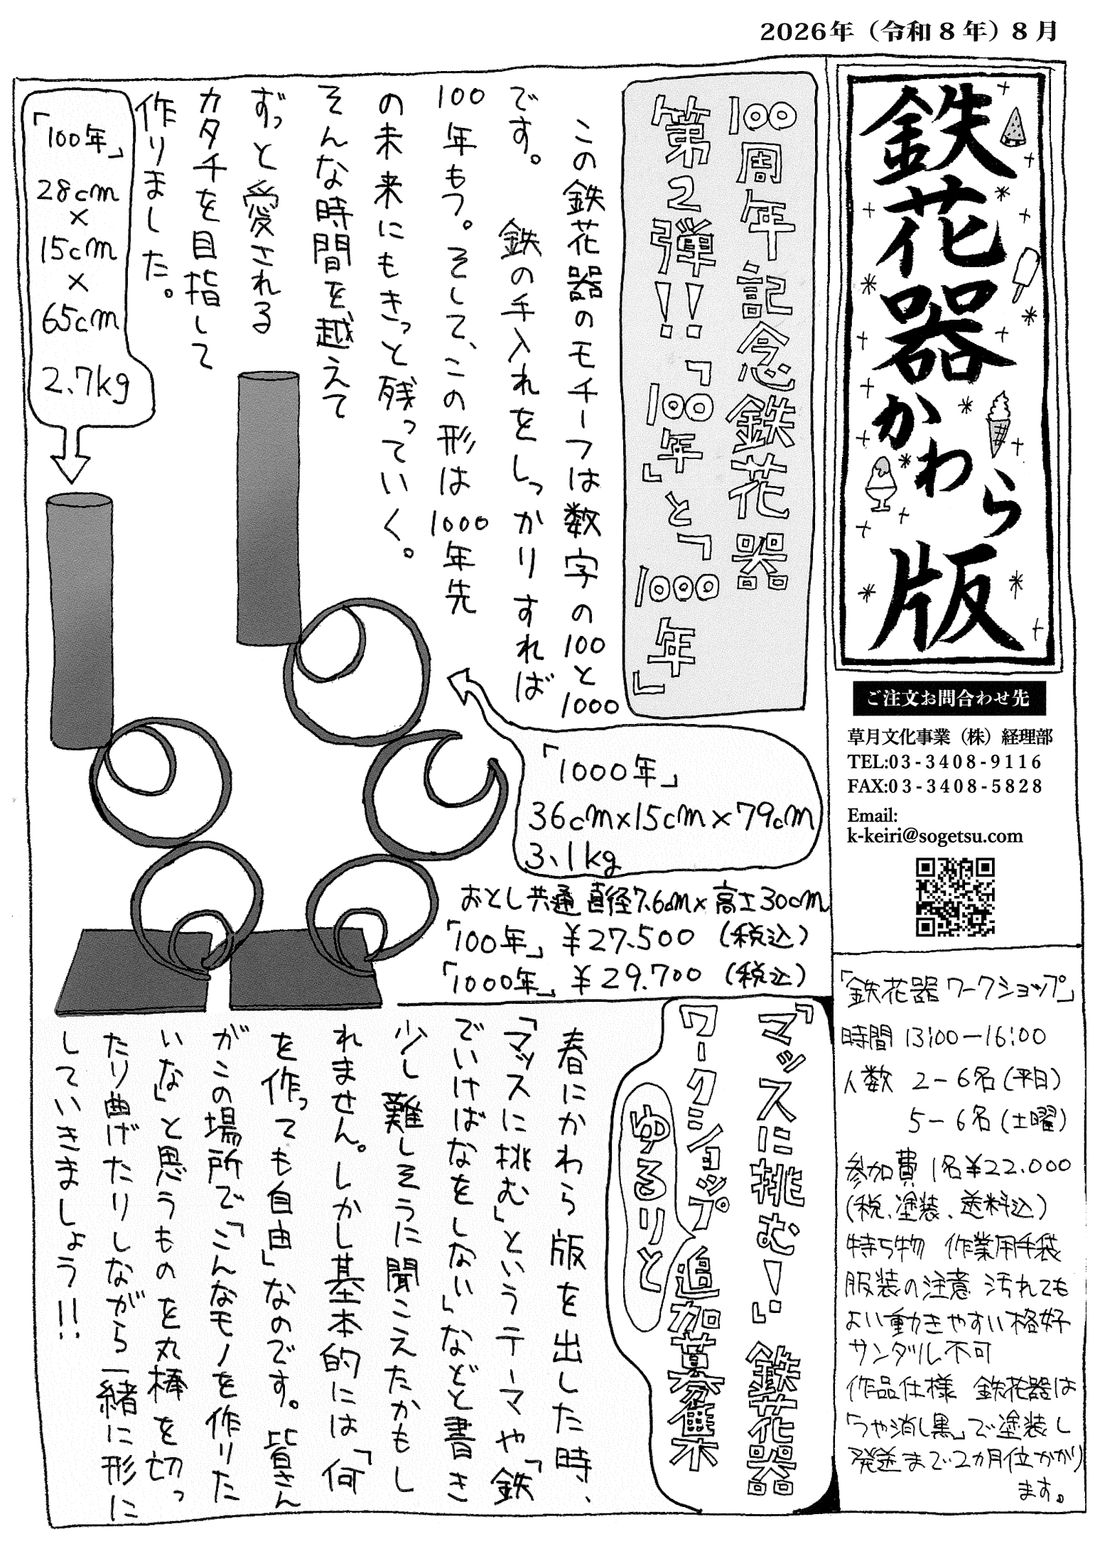 2026年（令和8年）8月
鉄花器かわら版
ご注文お問合わせ先
草月文化事業（株）経理部
TEL:03-3408-9116
FAX:03-3408-5828
Email:
k-keiri@sogetsu.com
100周年記念鉄花器
第2弾!!「100年」と「1000年」
この鉄花器のモチーフは数字の100と1000
です。 鉄の手入れをしっかりすれば
100年もつ。そして、この形は1000年先
の未来にもきっと残っていく。
そんな時間を越えて
ずっと愛される
カタチを目指して
作りました。
「100年」
28cm
×
15cm
×
65cm
2.7kg
「1000年」
36cm×15cm×79cm
3.1kg
おとし共通 直径7.6cm×高さ30cm
「100年」 ¥27.500 (税込)
「1000年」 ¥29.700 (税込)
「マッスに挑む!」鉄花器
ワークショップ追加募集
ゆるりと
春にかわら版を出した時、
「マッスに挑む」というテーマや「鉄
でいけばなをしない」などと書き
少し難しそうに聞こえたかもし
れません。しかし基本的には「何
を作っても自由」なのです。皆さん
がこの場所で「こんなモノを作りた
いな」と思うものを丸棒を切っ
たり曲げたりしながら一緒に形に
していきましょう!!
「鉄花器ワークショップ」
時間 13:00—16:00
人数 2—6名(平日)
5—6名(土曜)
参加費 1名¥22.000
(税、塗装、送料込)
持ち物 作業用手袋
服装の注意 汚れても
よい動きやすい格好
サンダル不可
作品仕様 鉄花器は
「つや消し黒」で塗装し
発送まで2ヵ月位かかり
ます。